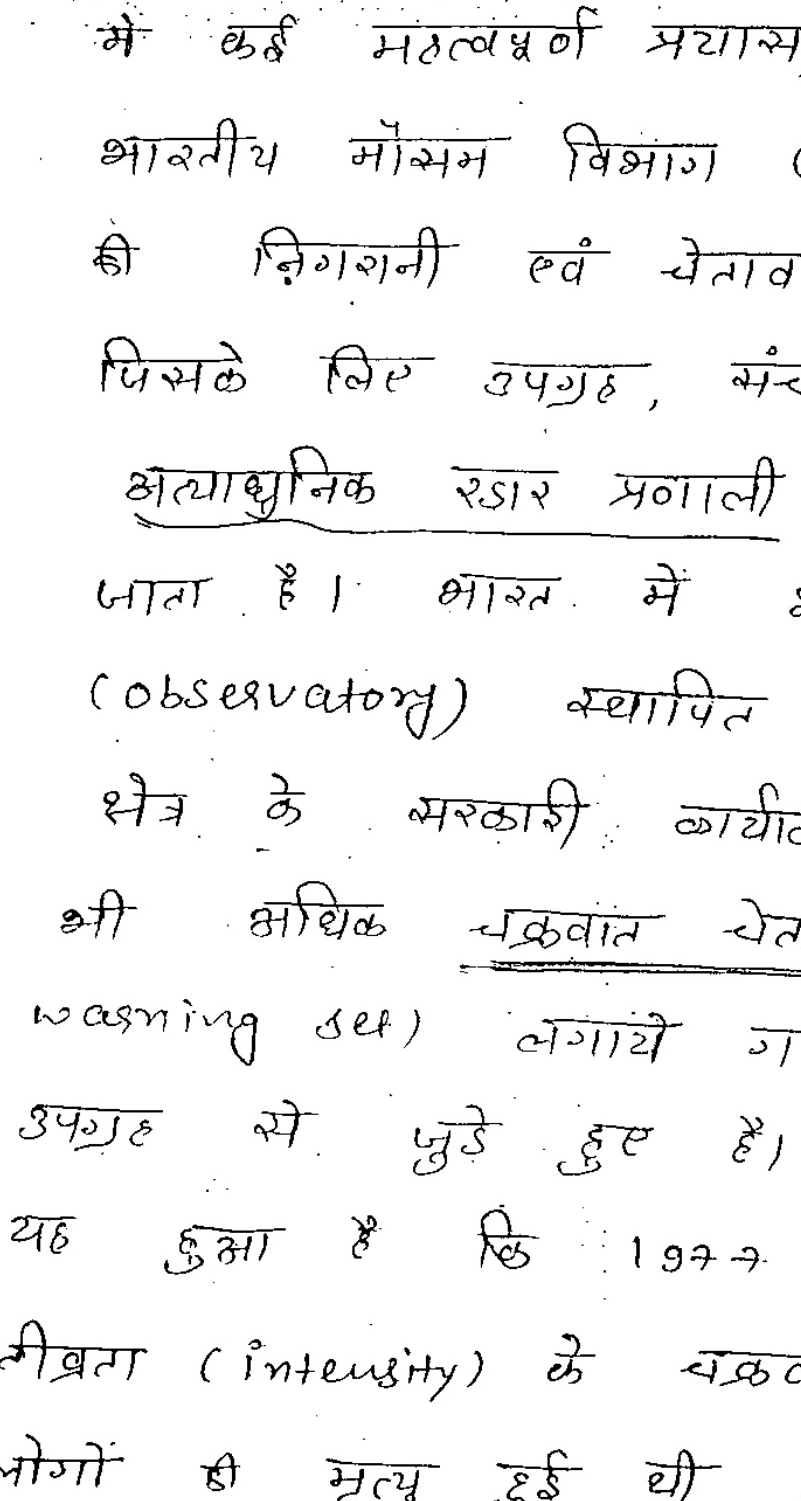 में कई महत्वपूर्ण प्रयास
भारतीय मौसम विभाग (
की निगरानी एवं चेताव
जिसके लिए उपग्रह, संच
अत्याधुनिक रडार प्रणाली
जाता है। भारत में
(observatory) स्थापित
क्षेत्र के सरकारी कार्याल
भी अधिक चक्रवात चेत
warning set) लगाये ग
उपग्रह से जुड़े हुए है।
यह हुआ है कि 1977
तीव्रता (intensity) के चक्रव
लोगों की मृत्यु हुई थी